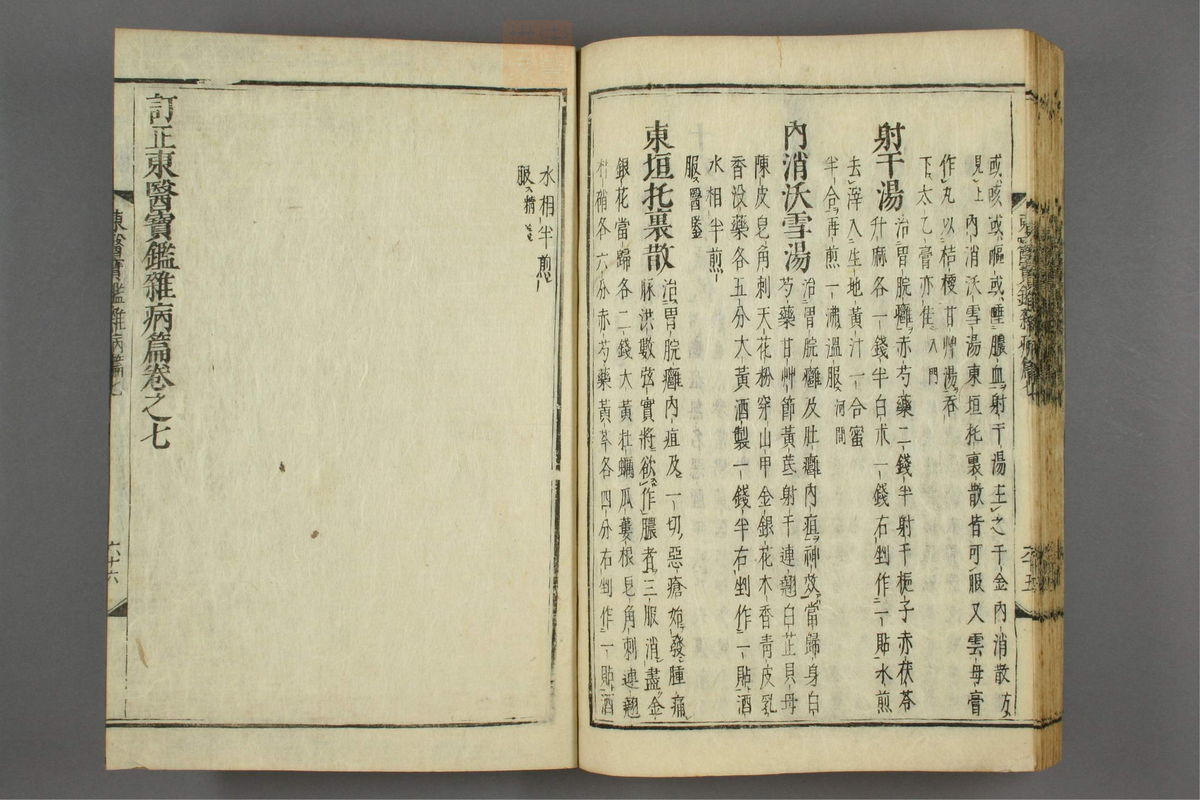 或咳或嘔或唾膿血射干湯主之千金內消散方
見上內消沃雪湯東垣托裏散皆可服又雲母膏
作丸以桔梗甘艸湯吞
下太乙膏亦佳入門
射干湯治胃脘癰赤芍藥二錢半射干梔子赤茯苓
升麻各一錢半白朮一錢右剉作一貼水煎
去滓入生地黃汁一合蜜
半合再煎一沸溫服河間
內消沃雪湯治胃脘癰及肚癰內疽神效當歸身白
芍藥甘艸節黃芪射干連翹白芷貝母
陳皮皂角刺天花粉穿山甲金銀花木香青皮乳
香沒藥各五分大黃酒製一錢半右剉作一貼酒
水相半煎
服醫鑒
東垣托裏散治胃脘癰內疽及一切惡瘡始發腫痛
脉洪數弦實將欲作膿者三服消盡金
銀花當歸各二錢大黃牡蠣瓜蔞根皂角刺連翹
朴硝各六分赤芍藥黃芩各四分右剉作一貼酒
東醫寶鑑雜病篇七
六十五
水相半煎
服精義
訂正東醫寶鑑雜病篇卷之七
東醫寶鑑雜病篇七
六十六